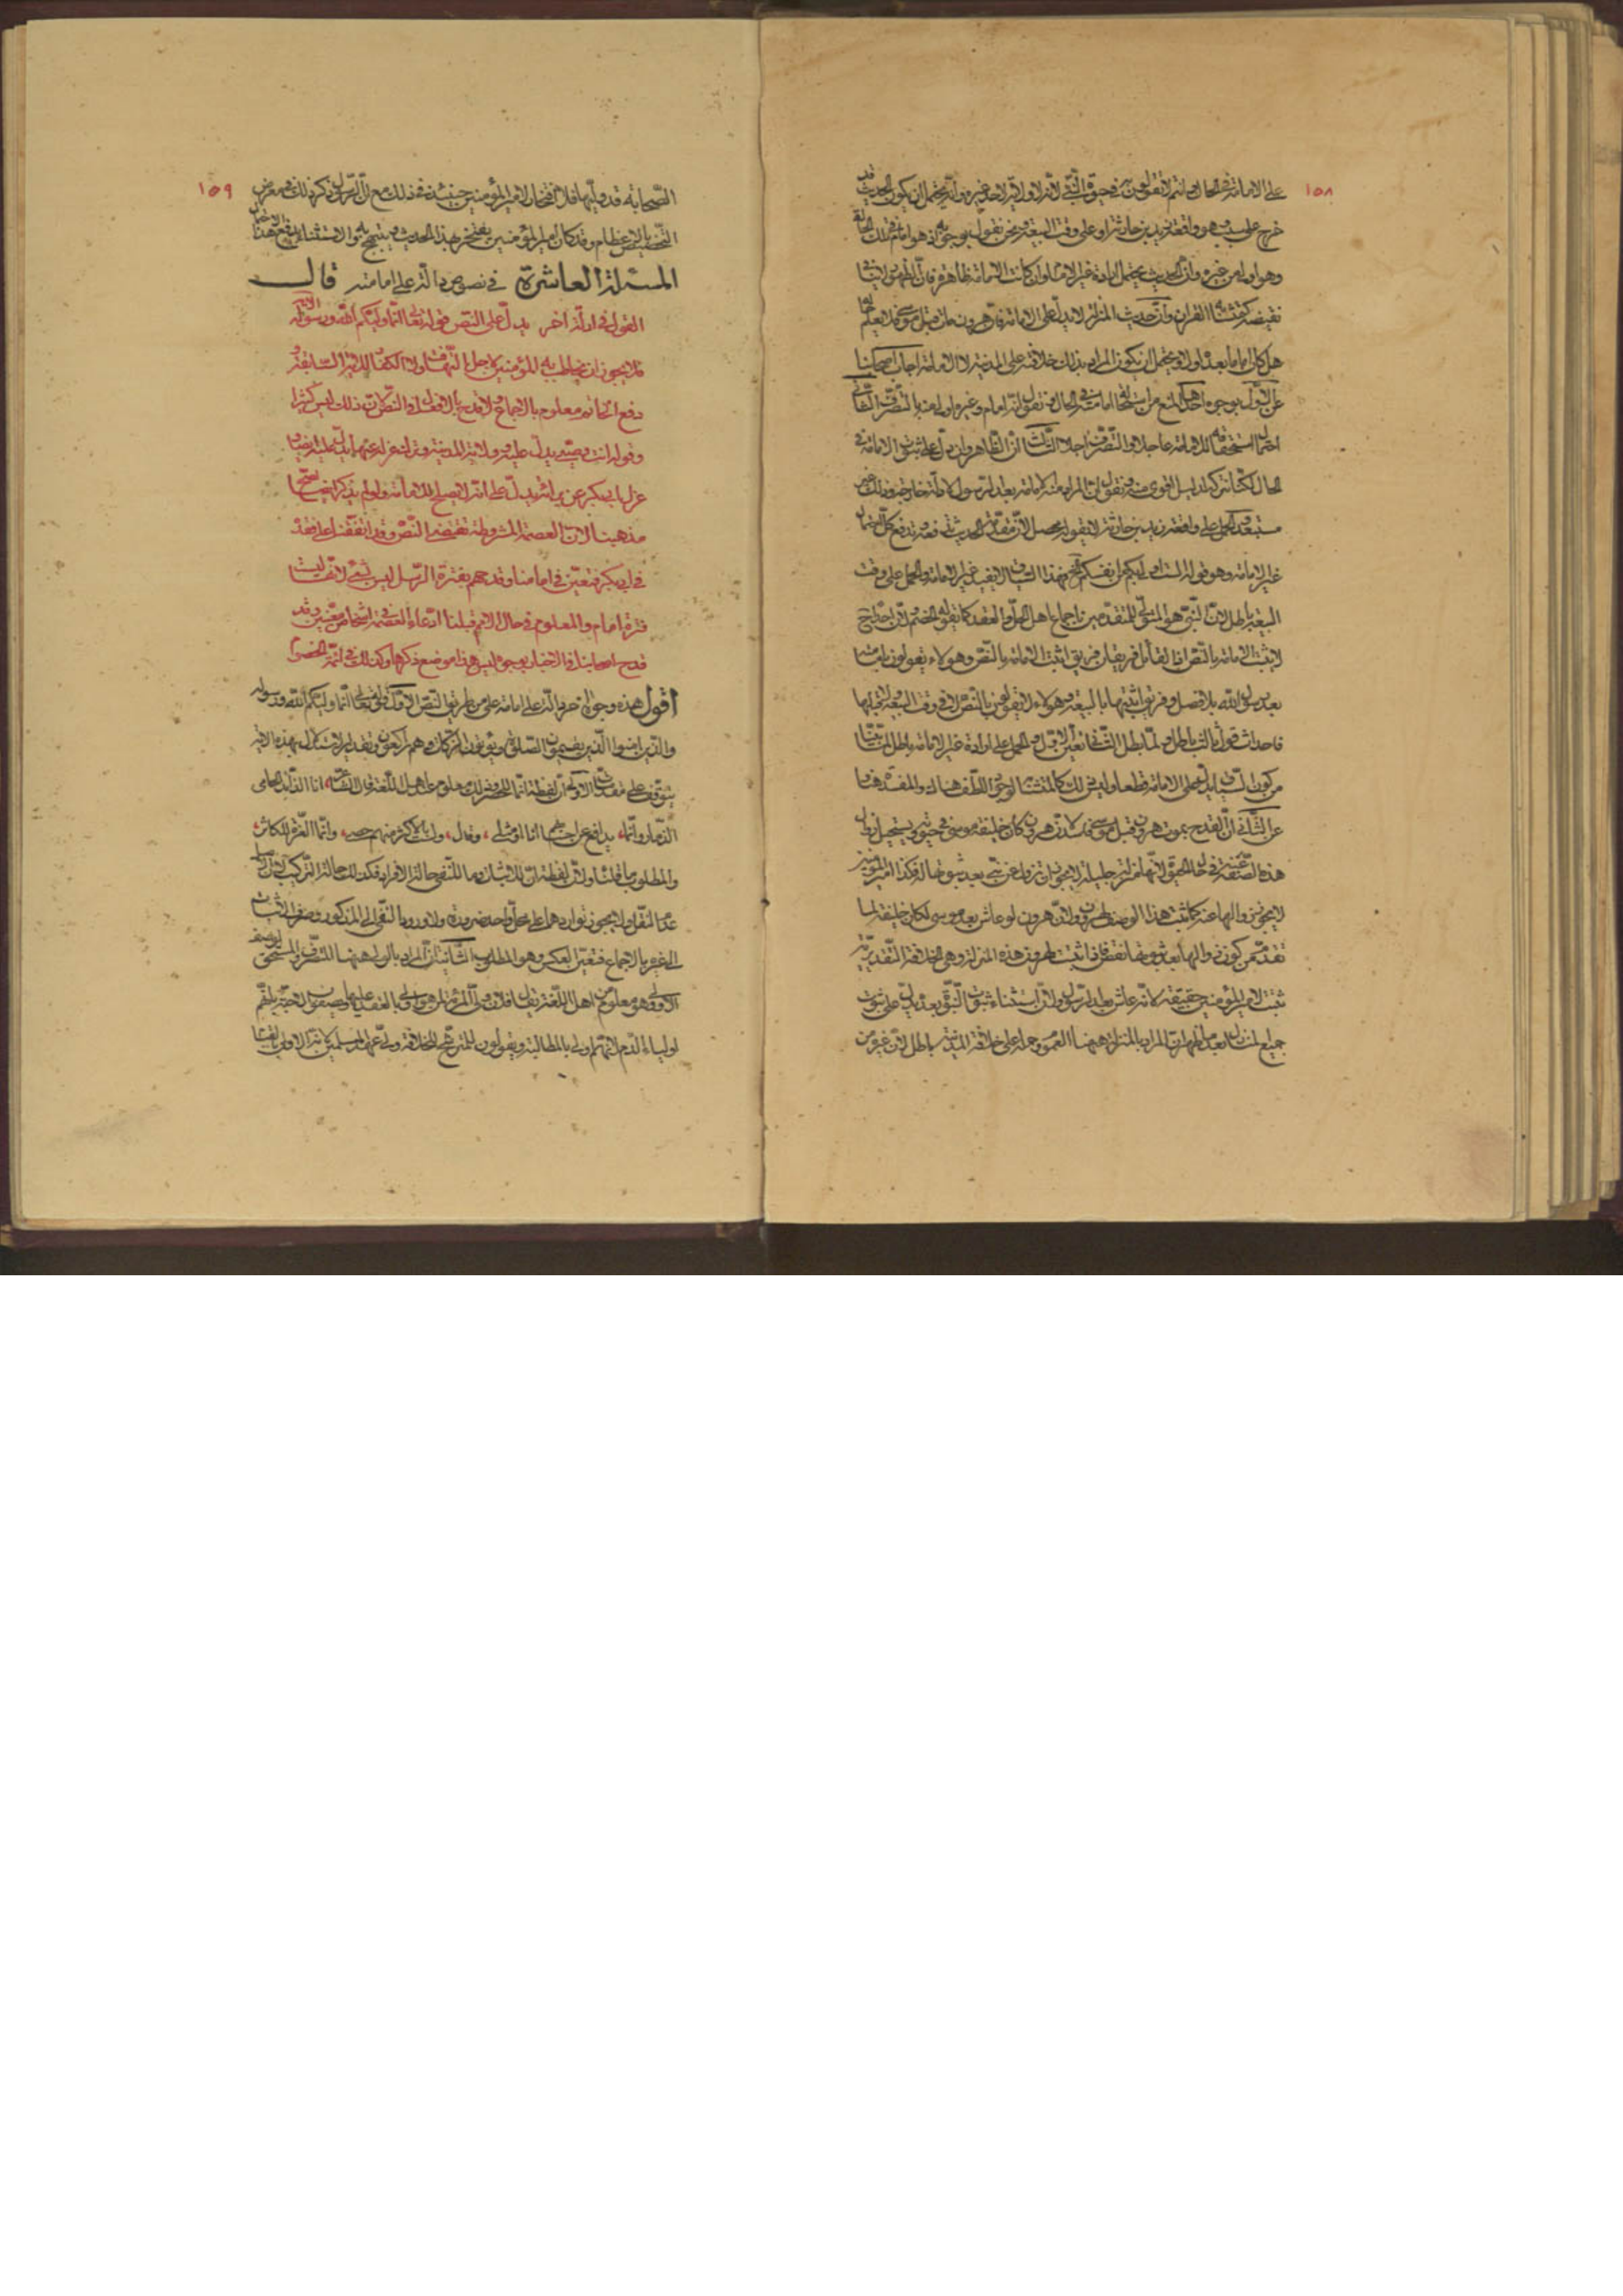 ١٥٨
على الامامة في الحال وانتم لا تقولون به في حق النبي لانه لا ولاية لاحد غيره وانه يحتمل ان يكون الحديث قد
خرج على سبب وهو واقعة زيد بن حارثة او على وقت البيعة ونحن نقول بوجوبه اذ هو امام في تلك الحالة
وهو اولى من غيره وان الحديث يحتمل ارادة غير الامامة وان كانت الامامة ظاهرة فان الظهور لا ينافي
نقيضه كمتشابه القرآن وان حديث المنزلة لا يدل على الامامة فان هرون مات قبل موسى فلا يعلم
هل كان اماما بعده اولا ويحتمل ان يكون المراد بذلك خلافته على المدينة لا الامامة اجاب اصحابنا
عن الاول بوجوه احدها المنع من استحقاق امامته في الحال بل نقول انه امام وغيره اولى منه بالتصرف الثاني
استحقاقه للامامة عاجلا والتصرف اجلا الثالث ان الظاهر وان دل على ثبوت الامامة في
الحال لكنا نتركه لدليل اقوى منه ونقول ان المراد منه الامامة بعد الرسول لادلة خارجة وذلك غير
مستبعد والحمل على واقعة زيد بن حارثة لا يقوله محصل لان مقدمة الحديث تدفعه وتدفع كل احتمال
غير الامامة وهو قوله الست اولى بكم من انفسكم فهذا السياق لا يفيد غير الامامة والحمل على وقت
البيعة باطل لان النبي هو المتولي للمتقدمين باجماع اهل الحل والعقد كما يقوله الخصم لان احدا
لا يثبت الامامة بالنص اذ القائل فريقان فريق اثبت الامامة بالنص وهؤلاء يقولون بامامته
بعد رسول الله بلا فصل وفريق اثبتها بالبيعة وهؤلاء لا يقولون بالنص لا في وقت البيعة ولا قبلها
فاحداث قول ثالث باطل ولما بطل الثاني تعين الاول والحمل على ارادة غير الامامة باطل لما بينا
من كون السياق يدل على الامامة قطعا وليس ذلك كالمتشابه لوجود اللطف هناك والمفسدة هنا
عن الثاني ان القدح بموت هرون قبل موسى فاسد لان هرون كان خليفة موسى في حيوته ويستحيل زوال
هذه الصفة عنه في حال الحيوة لانها منزلة جليلة لا يجوز ان تزول عن نبي بعد ثبوتها له فكذا امير المؤمنين
لا يجوز زوالها عنه كما ثبت هذا الوصف لهرون ولان هرون لو عاش بعد موسى لكان خليفة لما
تقدم من كون زوالها بعد ثبوتها نقصا فاذا ثبت لهرون هذه المنزلة وهي الخلافة التقديرية
ثبت لامير المؤمنين حقيقة لانه عاش بعد الرسول ولان استثناء ثبوت النبوة بعده يدل على ثبوت
جميع المنازل بعده فظهر ان المراد بالمنزلة ههنا العموم وحمله على خلافة المدينة باطل لان غيره من
١٥٩
الصحابة قد وليها فلا افتخار لامير المؤمنين حينئذ في ذلك مع ان الرسول ذكر ذلك في معرض
التخصيص والاعظام وقد كان امير المؤمنين يفتخر بهذا الحديث ويتبجح به والاستثناء يدفع هذا الاحتمال
المسئلة العاشرة في نصوص دالة على امامته قال
القول في ادلة اخر يدل على النص قوله تعالى انما وليكم الله ورسوله الاية
فلا يجوز ان يخاطب به المؤمنين لاجل النهاية ولا الكفار للاية السابقة و
دفع الخاتم معلوم بالاجماع ولا قدح بالافعال والنص لان ذلك ليس كثيرا
وقوله انت وصيي يدل عليه وولاية المدينة ولم يعزله عنها يدل عليه ايضا و
عزل ابي بكر عن براءة يدل على انه لا يصلح للامامة ولو لم يذكر هذا لصح
مذهبنا لان العصمة المشروطة تقتضي النص وقد اتفقنا على فقده
في ابي بكر فتعين في امامنا وقدحهم بفترة الرسل ليس بشيء لانها ليست
فترة امام والمعلوم في حال الامم قبلنا ادعاء العصمة في اشخاص معينين وقد
قدح اصحابنا في الاختيار بوجوه ليس هذا موضع ذكرها وكذلك في ائمة الخصوم
اقول هذه وجوه اخر دالة على امامة علي من طريق النص الاول قوله تعالى انما وليكم الله ورسوله
والذين امنوا الذين يقيمون الصلوة ويؤتون الزكوة وهم راكعون وتقدير الاستدلال بهذه الاية
يتوقف على مقدمات الاولى ان لفظة انما للحصر وذلك معلوم عند اهل اللغة قال الشاعر انا الذائد الحامي
الذمار وانما، يدافع عن احسابهم انا او مثلي، وقال، ولست بالاكثر منهم حصى، وانما العزة للكاثر،
والمطلوب ما قلناه ولان لفظة ان للاثبات وما للنفي حالة الافراد فكذلك حالة التركيب لاصالة
عدم النقل ولا يجوز تواردهما على محل واحد ضرورة ولا ورود النفي الى المذكور وصرف الاثبات
الى غيره بالاجماع فتعين العكس وهو المطلوب الثانية ان المراد بالولي ههنا المتصرف والمستحق لوصف
الاولى وهو معلوم من اهل اللغة يقال فلان ولي المرأة لمن هو اولى بالعقد عليها ويصفون العصبة بانهم
اولياء الدم لانهم اولى بالمطالبة ويقولون للمترشح للخلافة ولي عهد المسلمين لانه الاولى بالقيام